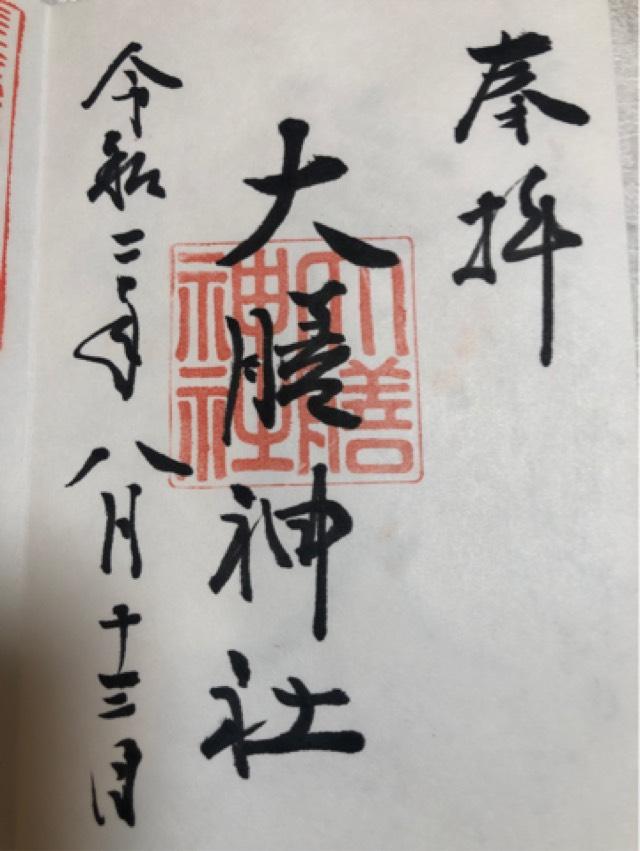 奉拝
大膳神社
大膳神社
令和二年八月十三日